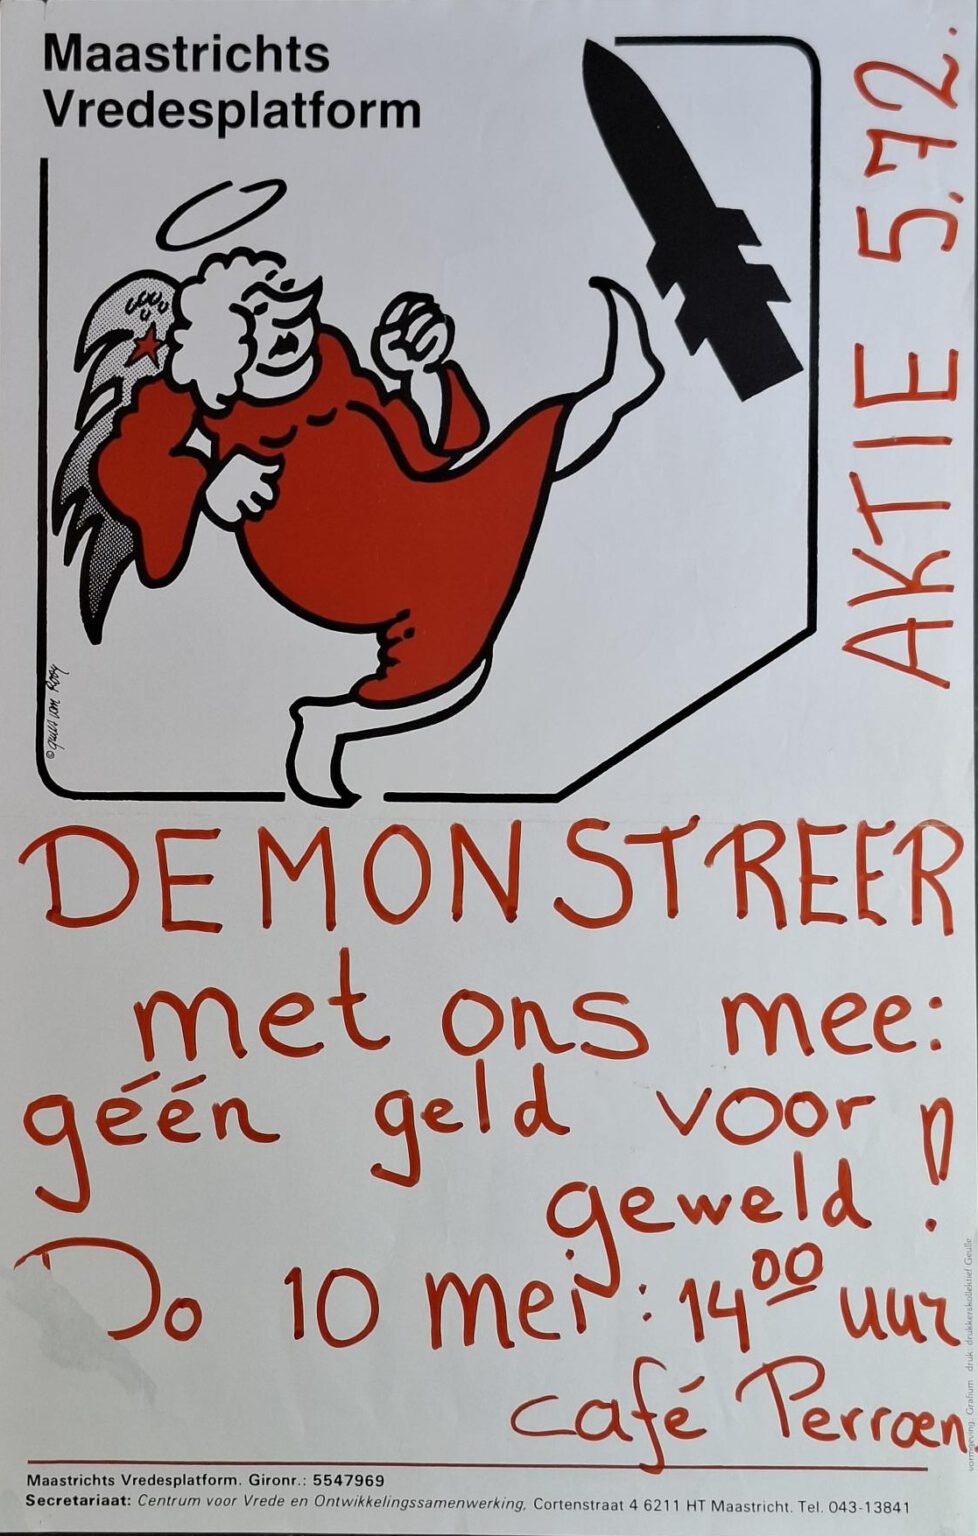 Maastrichts
Vredesplatform
AKTIE 5,72.
© gulles van Rooy
DEMONSTREER
met ons mee:
géén geld voor
geweld!
Do 10 mei: 14⁰⁰ uur
café Perroen
Maastrichts Vredesplatform. Gironr.: 5547969
Secretariaat: Centrum voor Vrede en Ontwikkelingssamenwerking, Cortenstraat 4 6211 HT Maastricht. Tel. 043-13841
vormgeving: Grafium druk: drukkerskollektief Geulle